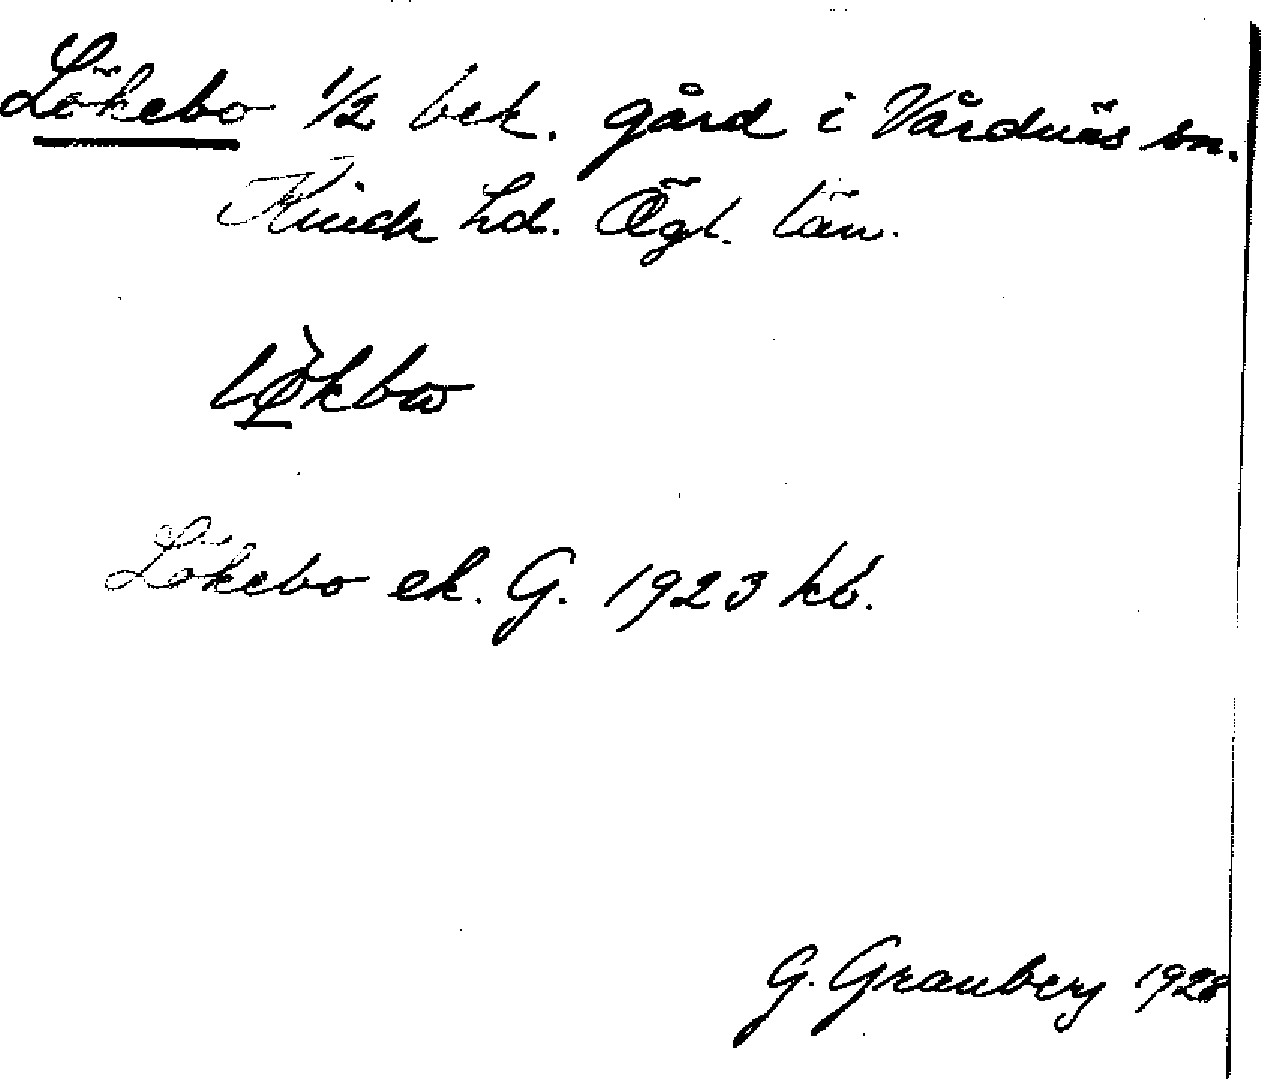 Lökebo 1/2 bek. gård i Vårdnäs sn.
Kinda hd. Ögl. län.
lø̀kbω
Lökebo ek. G. 1923 kb.
G. Granberg 1928